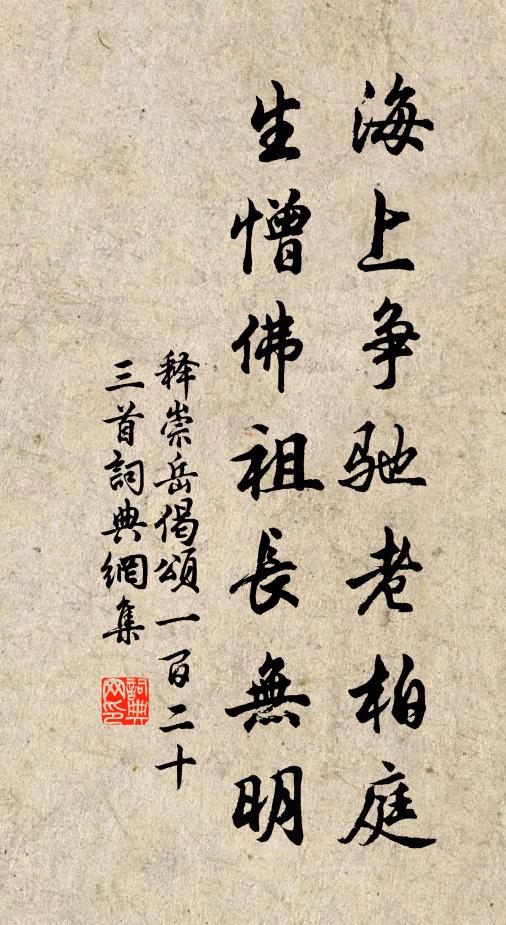 海上争馳老柏庭
生憎佛祖長無明
释崇岳偈頌一百二十
三首詞典網集
詞典
网印